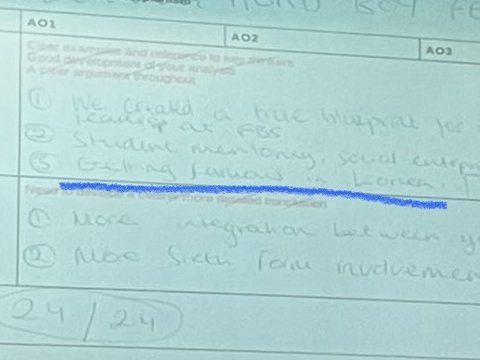 AO1
AO2
AO3
Clear examples and reference to key thinkers
Good development of your analysis
A clear argument throughout
① We created a true blueprint for
leadership at FBS
② Student mentoring, social
③ Getting famous in Korea,
Need to develop a clearer more detailed conclusion
① More integration between
② More Sixth Form
24/24